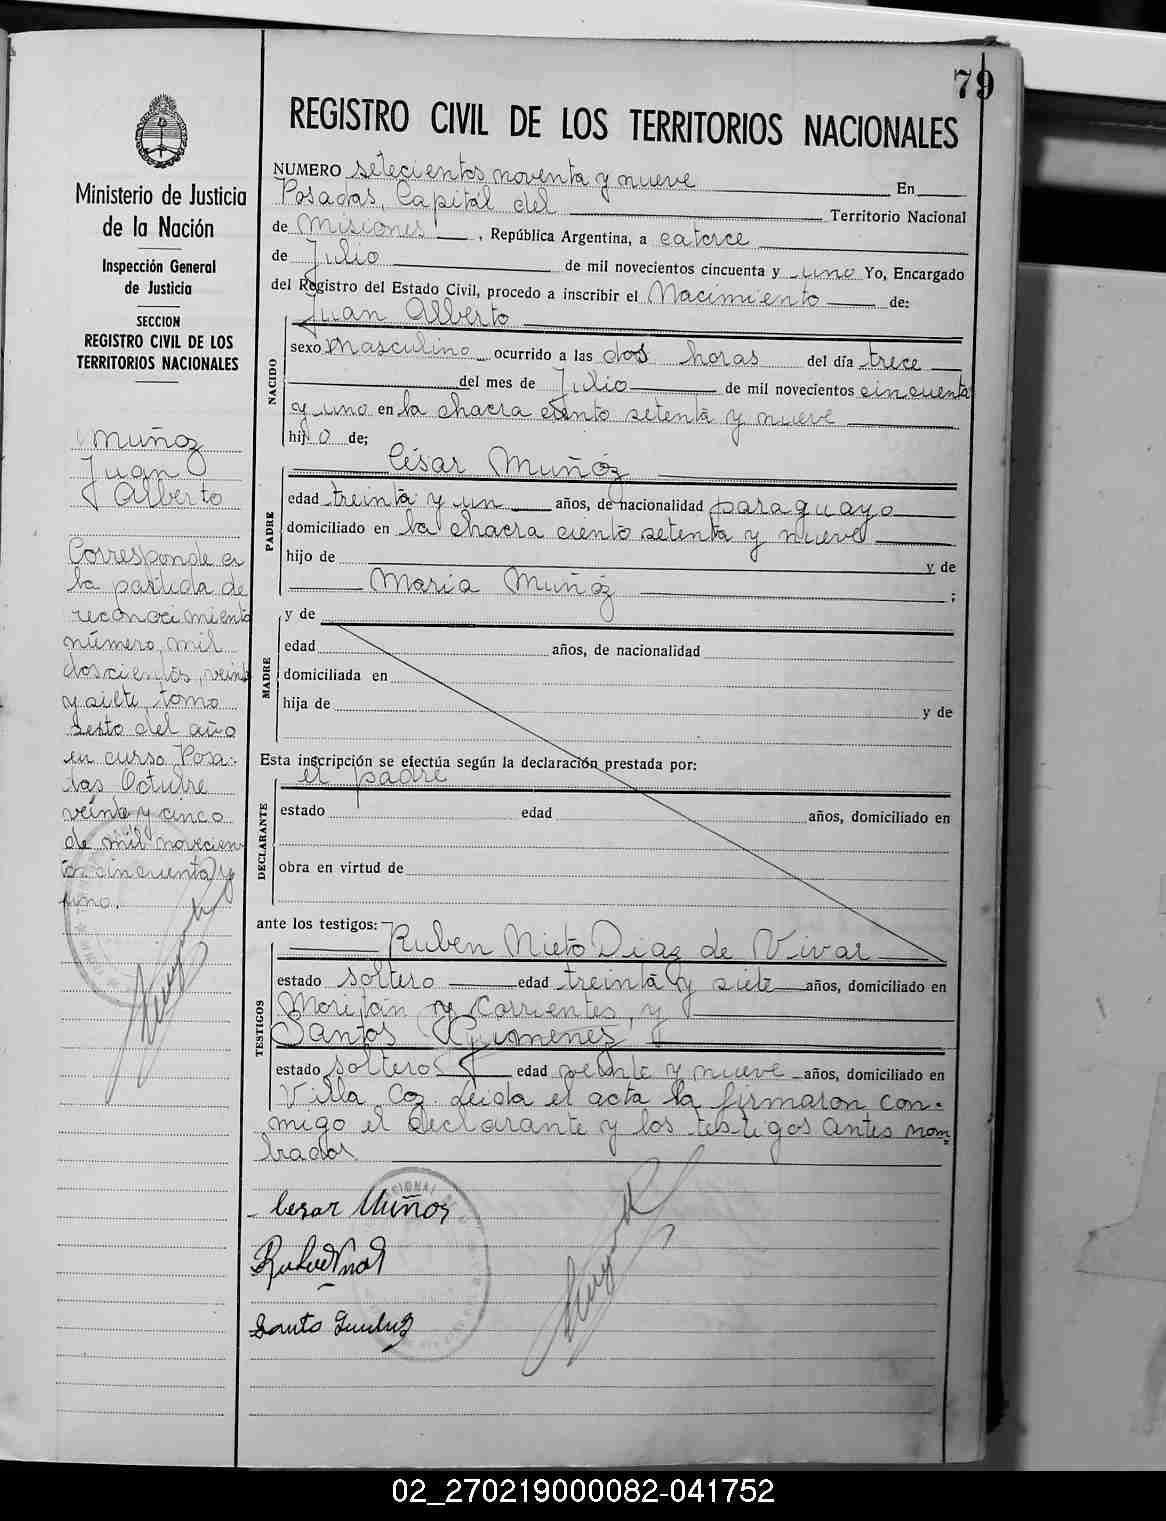 79
REGISTRO CIVIL DE LOS TERRITORIOS NACIONALES
NUMERO setecientos noventa y nueve En
Posadas, Capital del Territorio Nacional
de Misiones, República Argentina, a catorce
de Julio de mil novecientos cincuenta y uno Yo, Encargado
del Registro del Estado Civil, procedo a inscribir el Nacimiento de:
Juan Alberto
NACIDO
sexo masculino ocurrido a las dos horas del día trece
del mes de Julio de mil novecientos cincuenta
y uno en la chacra ciento setenta y nueve
hijo de;
César Muñóz
PADRE
edad treinta y un años, de nacionalidad paraguayo
domiciliado en la chacra ciento setenta y nueve
hijo de y de
Maria Muñóz ;
y de
MADRE
edad años, de nacionalidad
domiciliada en
hija de y de
Esta inscripción se efectúa según la declaración prestada por:
el padre
DECLARANTE
estado edad años, domiciliado en
obra en virtud de
ante los testigos:
Ruben Nieto Diaz de Vivar
TESTIGOS
estado soltero edad treinta y siete años, domiciliado en
y Corrientes, y
Santos Gimenez
estado soltero edad veinte y nueve años, domiciliado en
Villa Coz. Leida el acta la firmaron con-
migo el declarante y los testigos antes nom=
brados
Cesar Muños
Santo
Ministerio de Justicia
de la Nación
Inspección General
de Justicia
SECCION
REGISTRO CIVIL DE LOS
TERRITORIOS NACIONALES
Muñoz
Juan
Alberto
Corresponde es
la partida de
reconocimiento
número mil
doscientos, veinte
y siete, tomo
sesto del año
en curso. Posa-
das Octubre
veinte y cinco
de mil novecien
tos cincuenta y
uno.
02_270219000082-041752